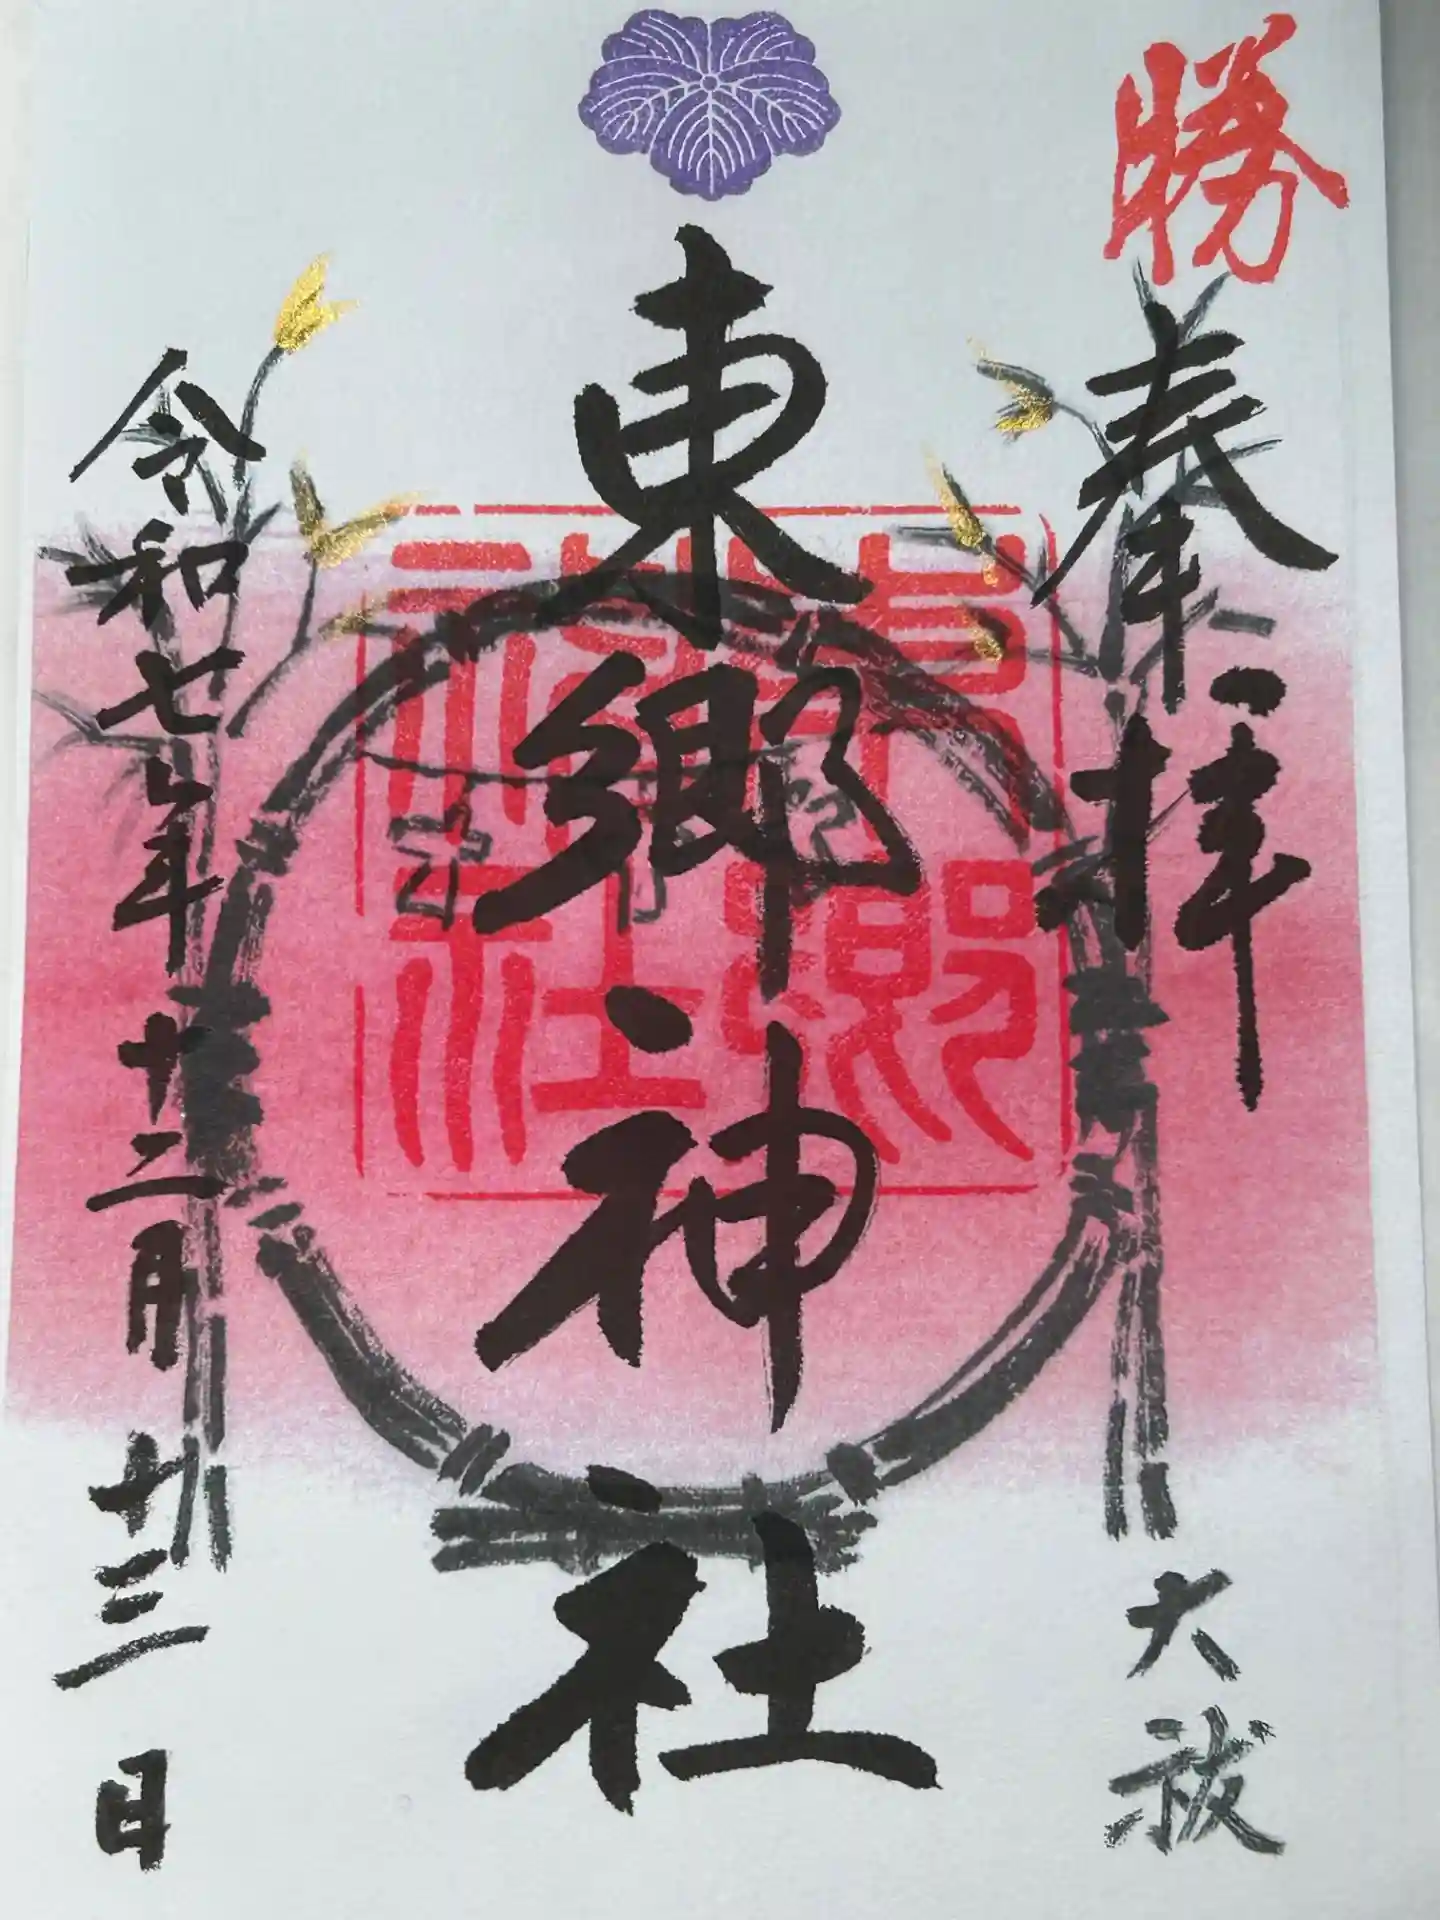 勝
奉拝
大祓
東郷神社
東郷神社
令和七年十二月十三日